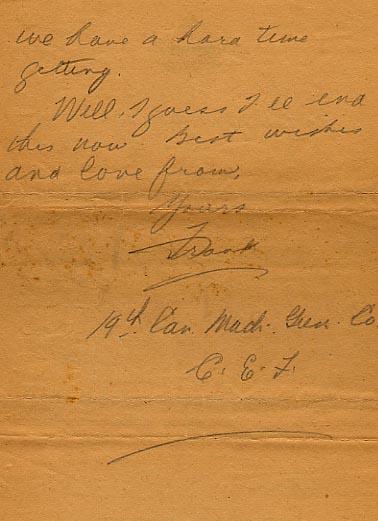 we have a hard time
getting.
Will, I guess I'll end
this now Best wishes
and love from,
Yours
Frank
19th Can. Mach. Gun. Co
C. E. F.